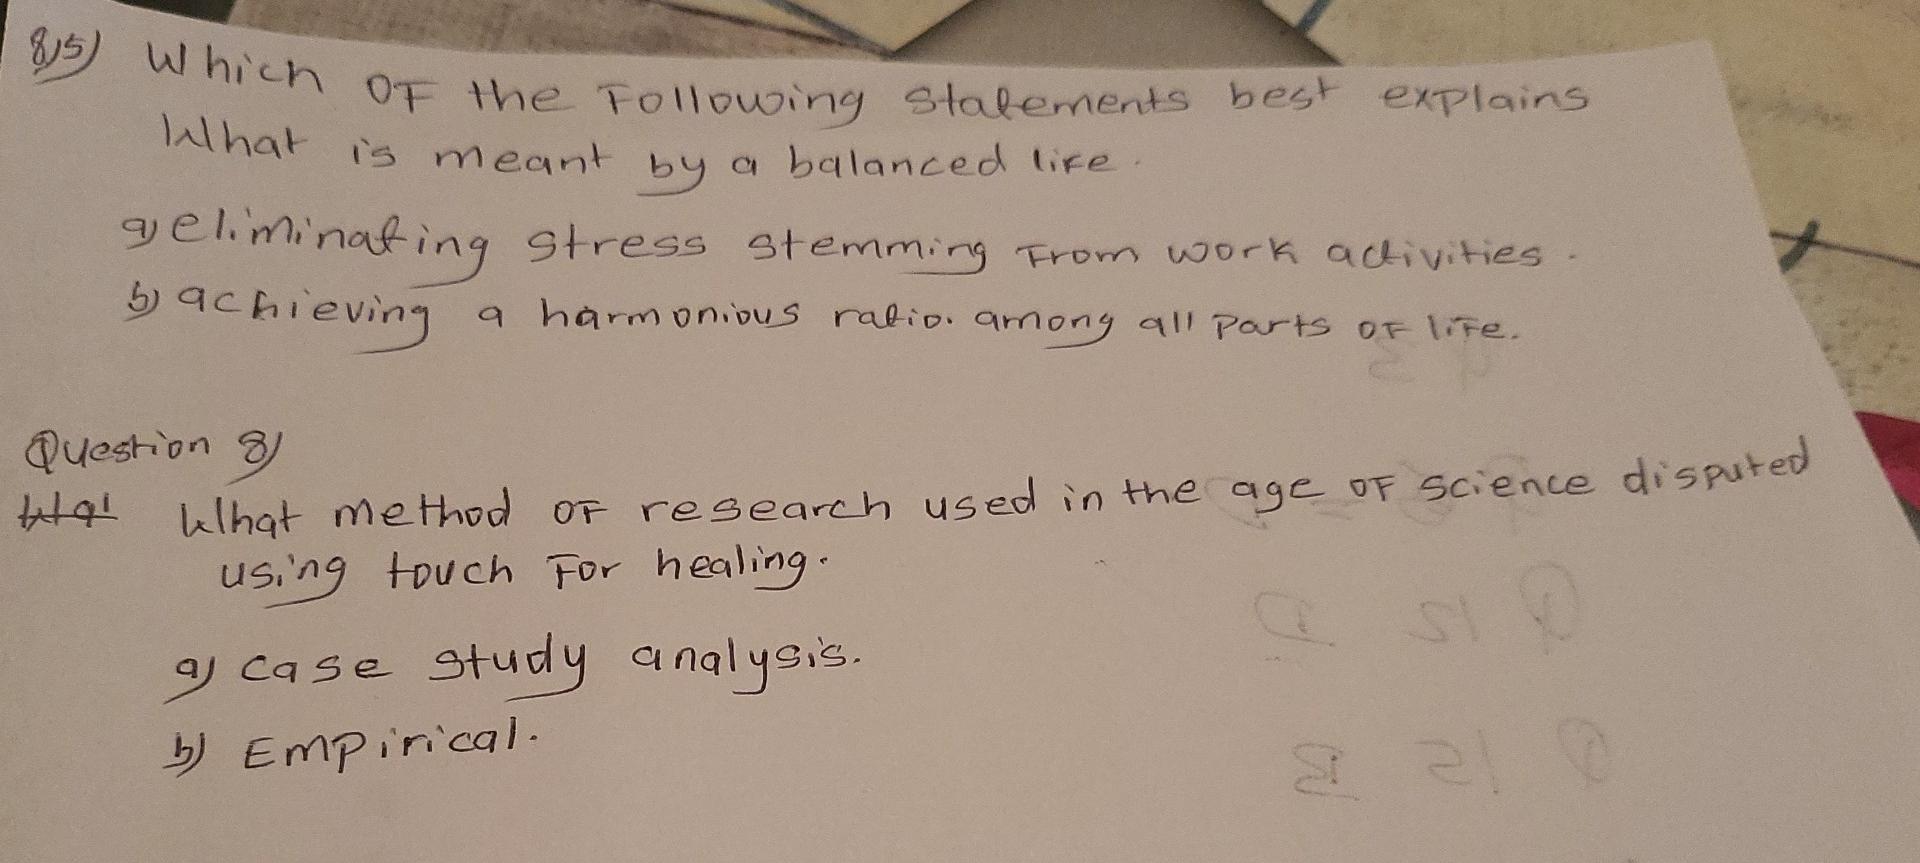 8/5) Which OF the Following Statements best explains
What is meant by a balanced life.
a) eliminating stress stemming From work activities.
b) achieving a harmonious ratio. among all parts OF life.
Question 8)
What method OF research used in the age OF science disputed
using touch For healing.
a) case study analysis.
b) Empirical.